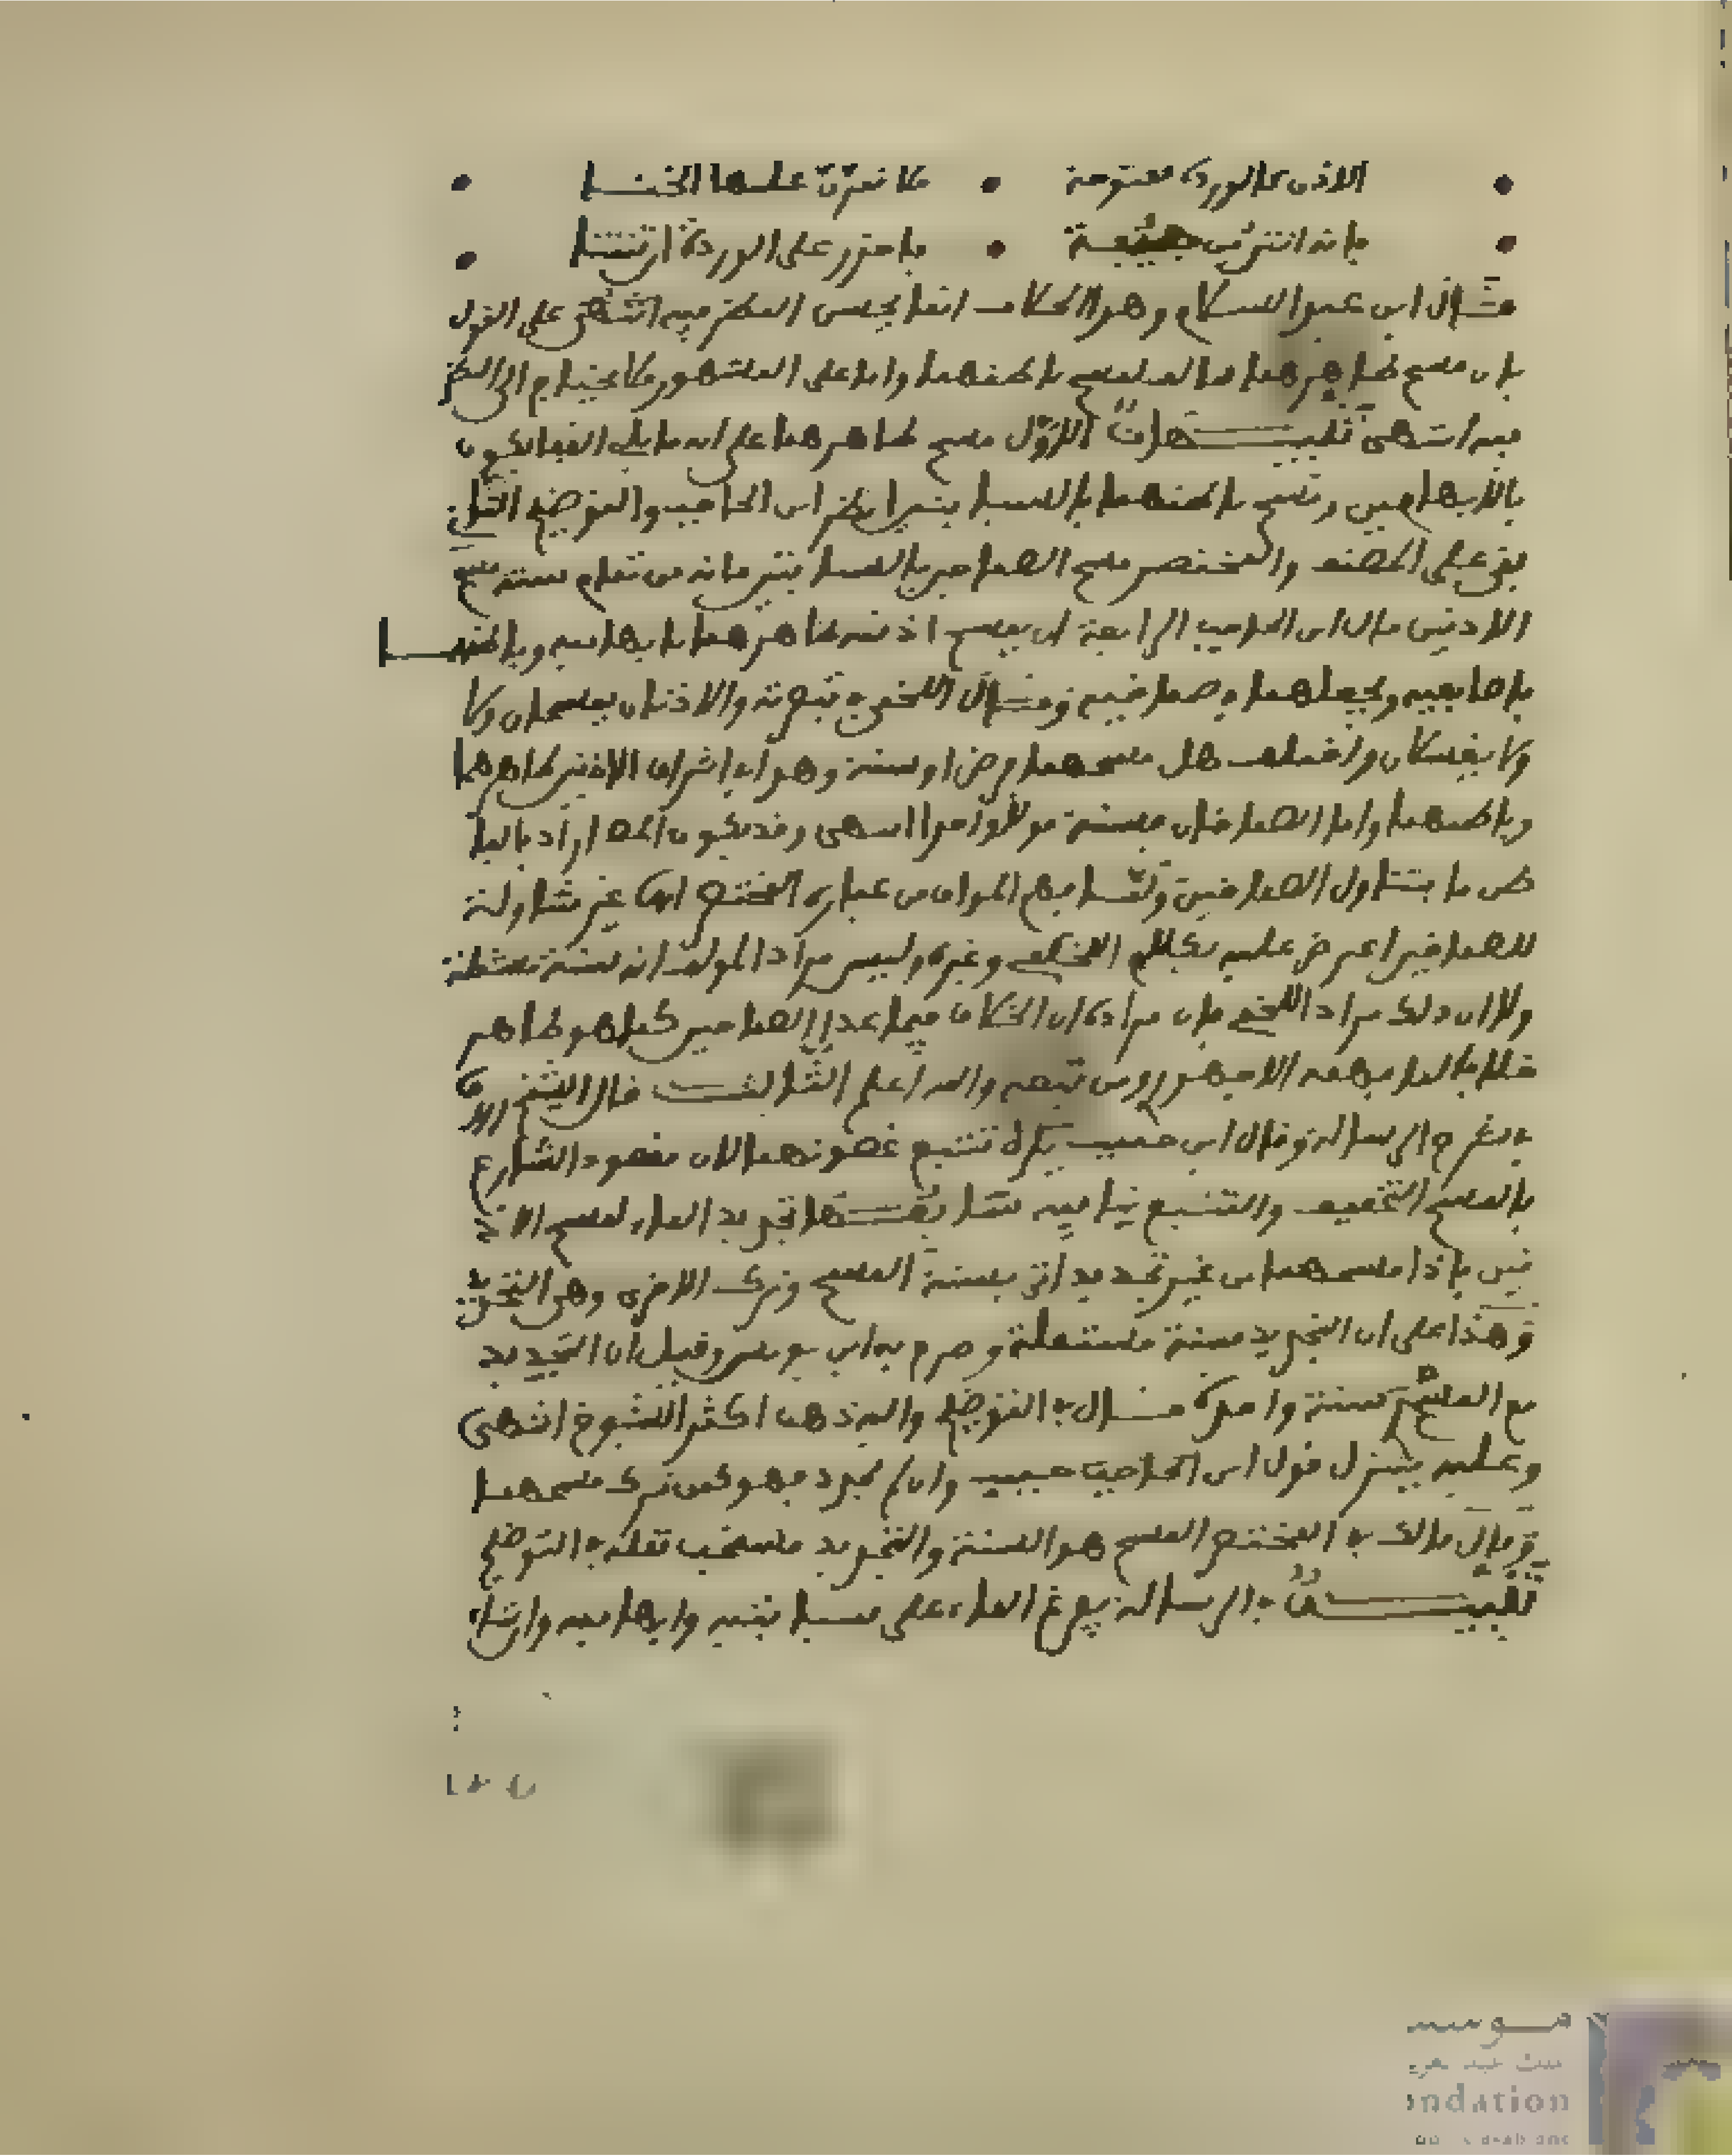 الاذن كالوردة مفتوحة • فلا تمرن عليها الخنا •
فانه انتن من جيفة • فاحرز على الوردة ان تنتنا •
وقال ابن عبد السلام وهذا الخلاف انما يحسن النظر فيه انتهى على القول
بان مسح ظاهرهما باطنهما واما على المشهور فلا يحتاج الى النظر
فيه انتهى تنبيهات الاول مسح ظاهرهما على انه ما يلي القفا يكون
بالابهامين وتمسح باطنهما بالسبابتين ابن الحاجب والتوضيح الثاني
بقي على المصنف والمختصر مسح الصماخ بالسبابتين فانه من تمام سنة مسح
الاذنين قال ابن الحاجب الرابعة ان يمسح اذنيه ظاهرهما بابهاميه وباطنهما
باصابعيه ويجعلهما في صماخيه وقال اللخمي في تبصرته والاذنان يمسحان ولا
ولا يغسلان واختلف هل مسحهما فرض او سنة وهو في اشراف الاذنين ظاهرهما
وباطنهما واما الصماخان فسنة قولا واحدا انتهى وقد يكون المصنف اراد بالبا
طن ما يتناول الصماخين ولما فهم المواق من عبارة المختصر انها غير متناولة
للصماخين اعترض عليه بكلام اللخمي وغيره وليس مراد المؤلف انه سنة مستقلة
ولا ان ذلك مراد اللخمي فان مراده ان الخلاف فيما عدا الصماخين كما هو ظاهر
خلافا لما فهمه الاجهوري ومن تبعه والله اعلم الثالث قال الشيخ زرو
في شرح الرسالة وقال ابن حبيب يكره تتبع غضونهما لان مقصود الشارع
بالمسح التخفيف والتتبع ينافيه تجديد الماء لمسح الاذ
نين فاذا مسحهما من غير تجديد اتى بسنة المسح وترك الاخرى وهي التجديد
وهذا على ان التجديد سنة مستقلة وصرح به ابن يونس وقيل ان التجديد
مع المسح سنة واحدة قال في التوضيح واليه ذهب اكثر الشيوخ انتهى
وعليه يتنزل قول ابن الحاجب حبيب وان لم يجدد فهو كمن ترك مسحهما
وقال مالك في المختصر المسح هو السنة والتجديد مستحب نقله في التوضيح
تنبيه في الرسالة يفرغ الماء على سبابتيه وابهاميه وان شاء
موسسة
ndation